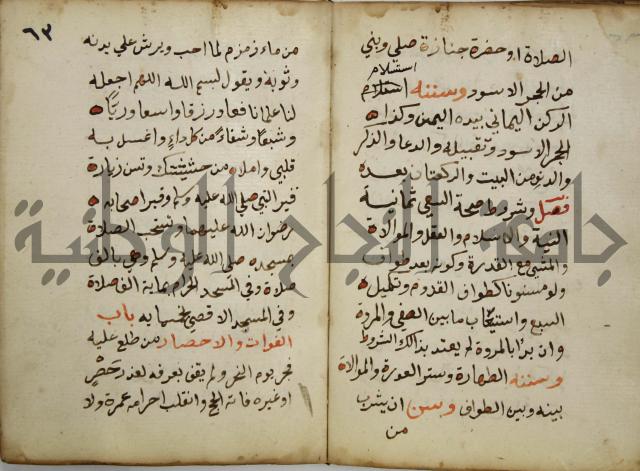 الصلاة او حضرة جنازة صلي وبني
استلام
من الحجر الاسود وسننه استلام
الركن اليماني بيده اليمن وكذا
الحجر الاسود وتقبيله والدعا والذكر
والدنو من البيت والركعتان بعده
فصل وشروط صحة السعي ثمانية
النية والاسلام والعقل والموالاة
والمشي مع القدرة وكونه بعد طواف
ولو مسنونا كطواف القدوم وتكميله
السبع واستيعاب ما بين الصفي والمروة
وان بدا بالمروة لم يعتد بذالك الشوط
وسننه الطهارة وستر العورة والموالاة
بينه وبين الطواف وسن ان يشرب
من
٦٣
من ماء زمزم لما احب ويرش علي بدنه
وثوبه ويقول بسم الله اللهم اجعله
لنا علما نافعا ورزقا واسعا وريا
وشبعا وشفاء من كل داء واغسل به
قلبي واملاه من خشيتك وتسن زيارة
قبر النبي صلي الله عليه وسلم وقبر صاحبيه
رضوان الله عليهما وتستحب الصلاة
بمسجده صلي الله عليه وسلم وهي بالف
صلاة وفي المسجد الحرام بماية الف صلاة
وفي المسجد الاقصي بخمسمايه باب
الفوات والاحصار من طلع عليه
فجر يوم النحر ولم يقف بعرفه لعذر حصر
او غيره فاته الحج وانقلب احرامه عمرة ولا
جامعة النجاح الوطنية